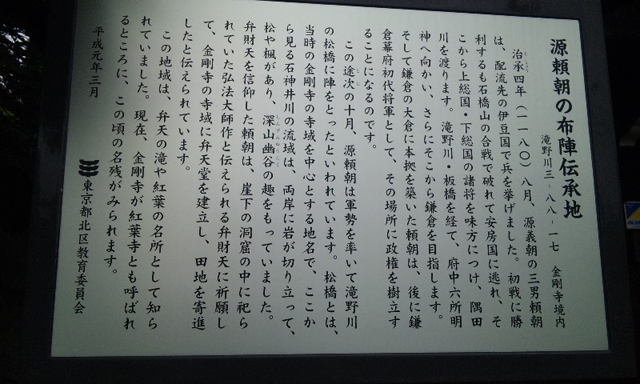 源頼朝の布陣伝承地
滝野川三‐八八‐一七　金剛寺境内
治承四年（一一八〇）八月、源義朝の三男頼朝
は、配流先の伊豆国で兵を挙げました。初戦に勝
利するも石橋山の合戦で破れて安房国に逃れ、そ
こから上総国・下総国の諸将を味方につけ、隅田
川を渡ります。滝野川・板橋を経て、府中六所明
神へ向かい、さらにそこから鎌倉を目指します。
そして鎌倉の大倉に本拠を築いた頼朝は、後に鎌
倉幕府初代将軍として、その場所に政権を樹立す
ることになるのです。
この途次の十月、源頼朝は軍勢を率いて滝野川
の松橋に陣をとったといわれています。松橋とは、
当時の金剛寺の寺域を中心とする地名で、ここか
ら見る石神井川の流域は、両岸に岩が切り立って、
松や楓があり、深山幽谷の趣をもっていました。
弁財天を信仰した頼朝は、崖下の洞窟の中に祀ら
れていた弘法大師作と伝えられる弁財天に祈願し
て、金剛寺の寺域に弁天堂を建立し、田地を寄進
したと伝えられています。
この地域は、弁天の滝や紅葉の名所として知ら
れていました。現在、金剛寺が紅葉寺とも呼ばれ
るところに、この頃の名残がみられます。
平成元年三月
東京都北区教育委員会